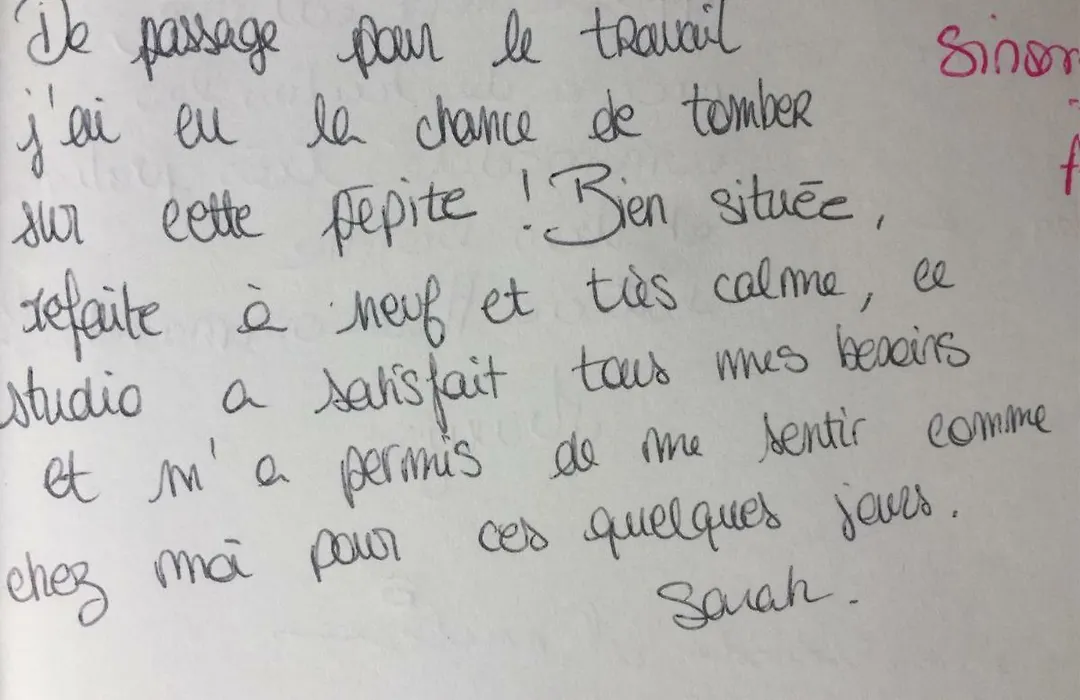 De passage pour le travail
j'ai eu la chance de tomber
sur cette pépite ! Bien située,
refaite à neuf et très calme, ce
studio a satisfait tous mes besoins
et m'a permis de me sentir comme
chez moi pour ces quelques jours.
Sarah.
Sinon